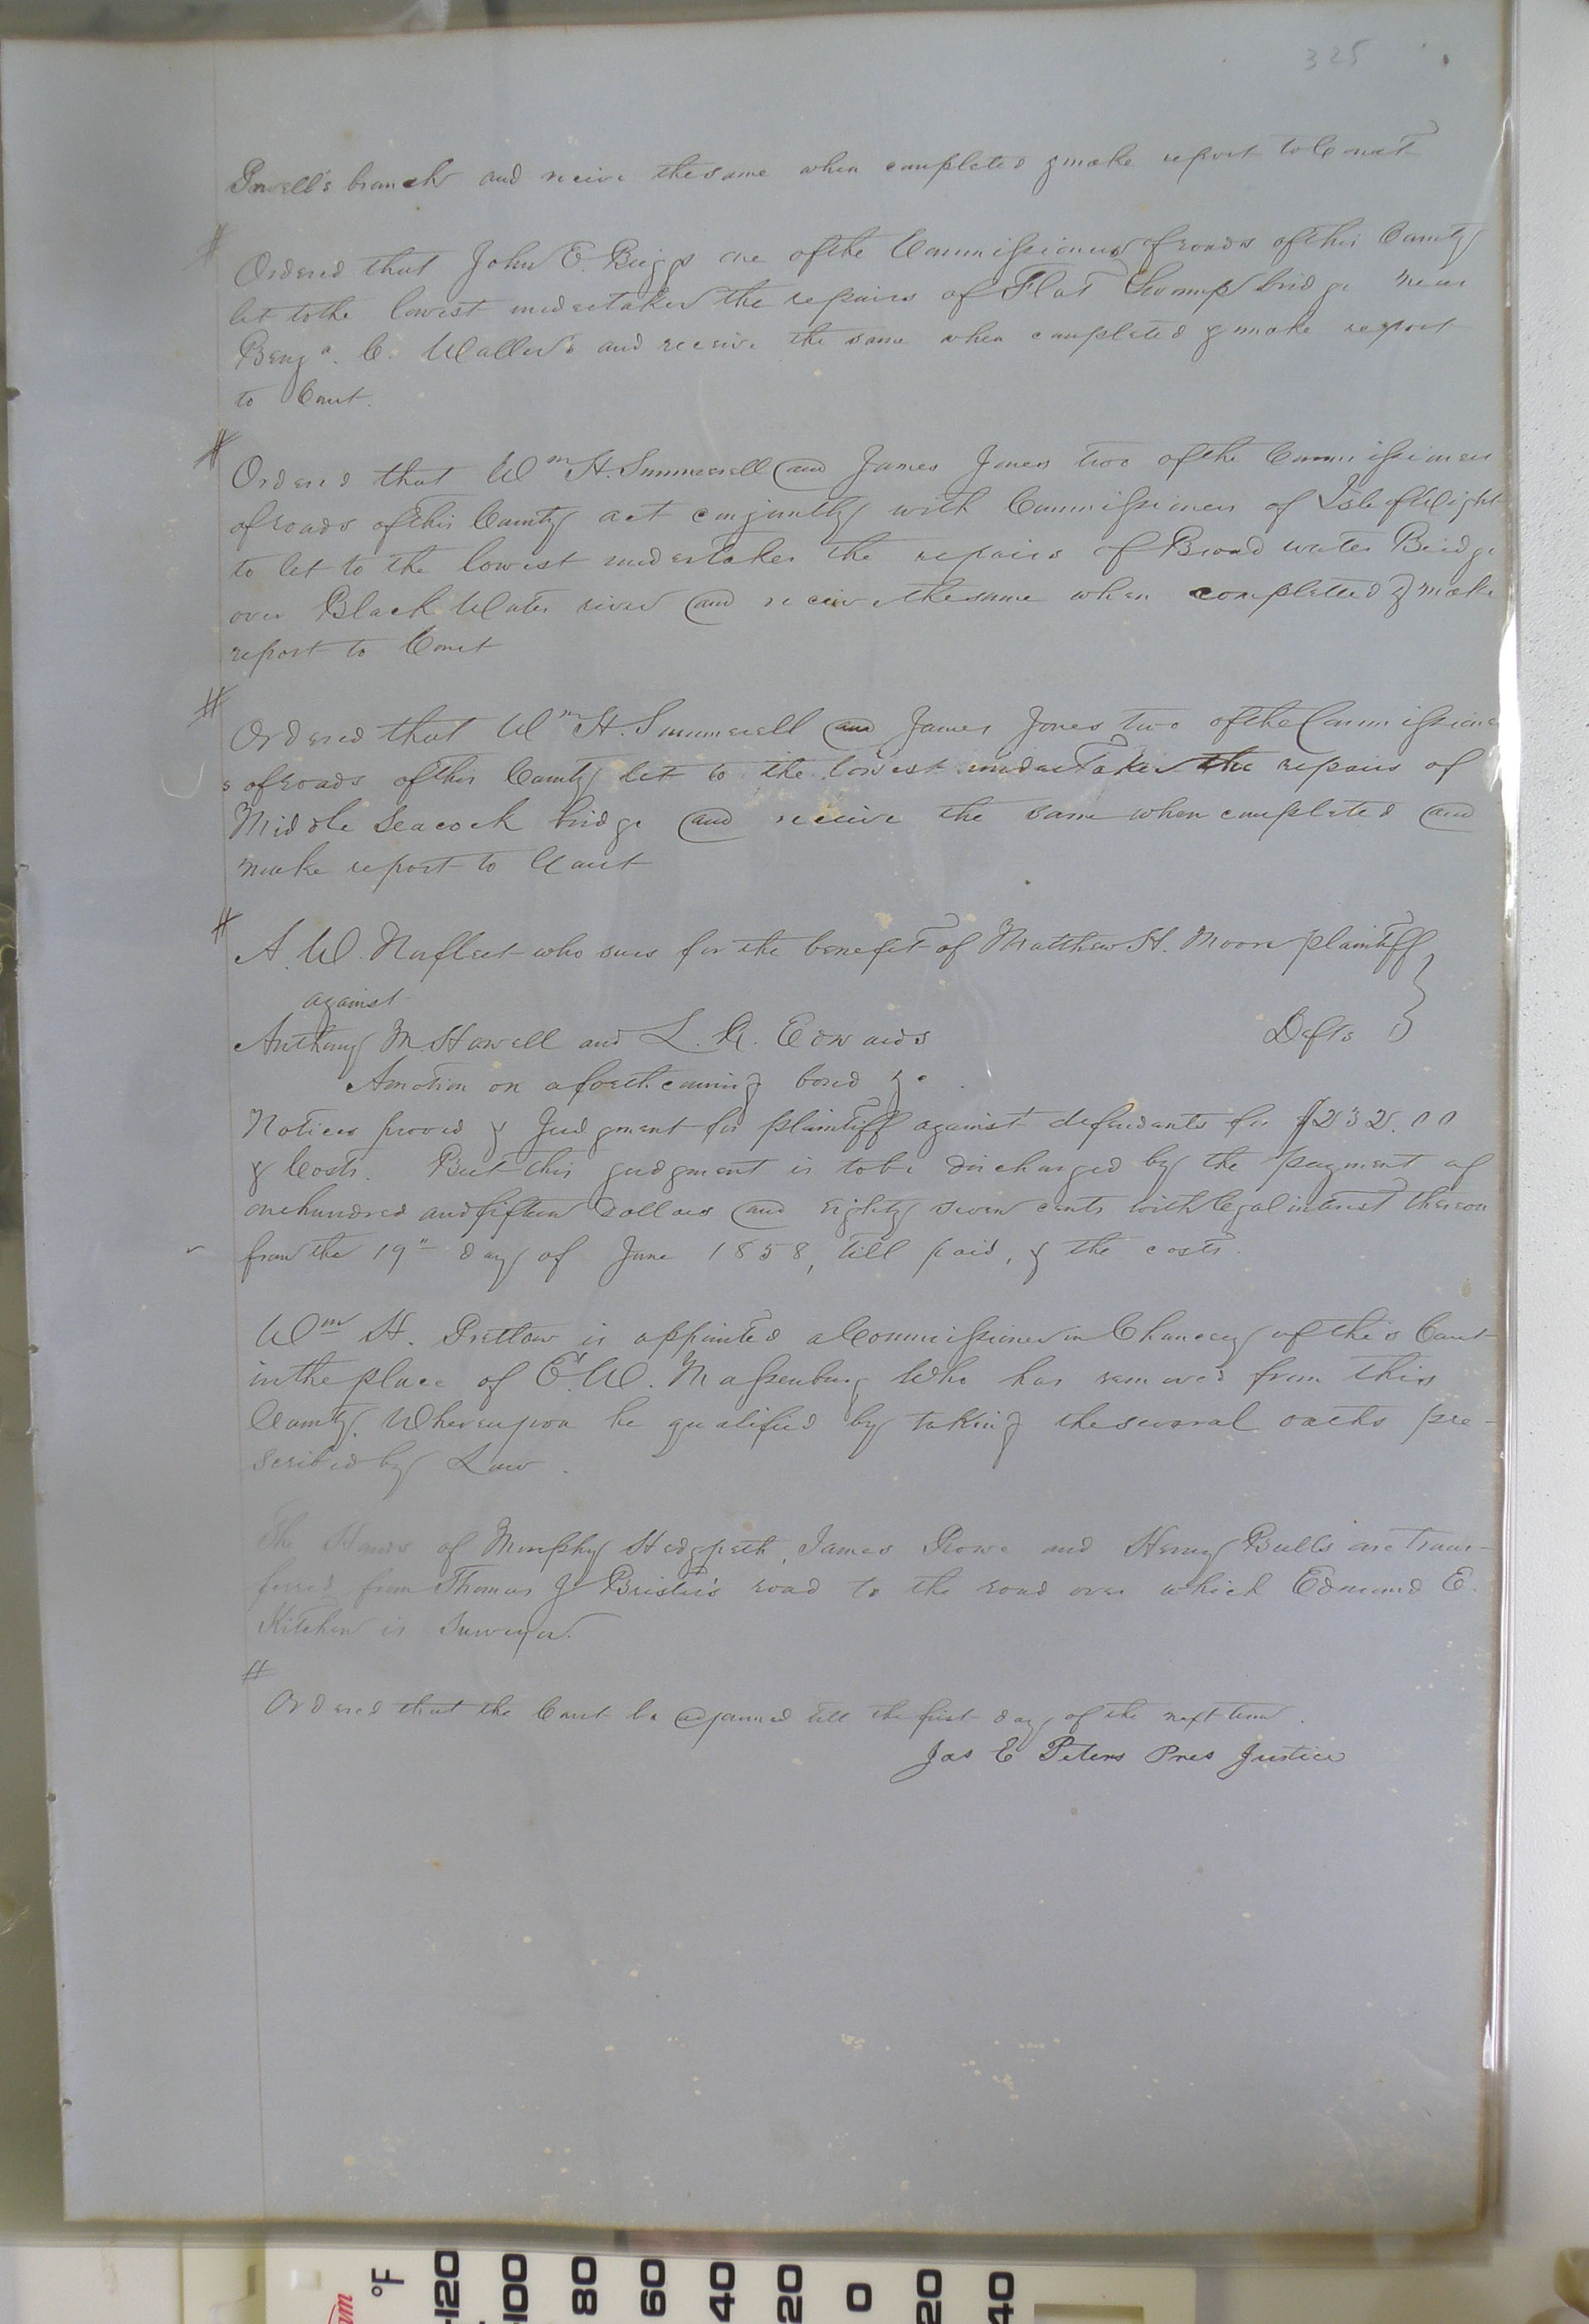 325
Powell's branch and receive the same when completed & make report to Court
#
Ordered that John E. Briggs one of the Commissioners of roads of this County
let to the lowest undertaker the repairs of Flat Swamp bridge near
Benja. C. Waller's and receive the same when completed & make report
to Court.
#
Ordered that Wm H. Summerell and James Jones two of the Commissioners
of roads of this County act conjointly with Commissioners of Isle of Wight
to let to the lowest undertaker the repairs of Broad water Bridge
over Black Water river and receive the same when completted & make
report to Court
#
Ordered that Wm H. Summerell and James Jones two of the Commissione
s of roads of this County let to the lowest undertaker the repairs of
Middle Seacock bridge and receive the same when completed and
make report to Court
#
A. W. Norfleet who sues for the benefit of Matthew H. Moore plaintiff
against
Anthony M. Howell and L. R. Edwards Defts
A motion on a forthcoming bond &c.
Notices proved & Judgment for plaintiff against defendants for $232.00
& Costs. But this judgment is to be discharged by the payment of
one hundred and fifteen Dollars and eighty seven cents with legal interest thereon
from the 19" day of June 1858, till paid, & the costs.
Wm H. Pretlow is appointed a Commissioner in Chancery of this Court
in the place of E. W. Massenburg Who has removed from this
County. Whereupon he qualified by taking the several oaths pre-
scribed by Law.
The Hands of Murphy Hedgpeth, James Rowe and Henry Bulls are trans-
ferred from Thomas J. Bristers road to the road over which Edmund E.
Kitchen is Surveyor.
#
Ordered that the Court be adjourned till the first day of the next term.
Jas E Peters Pres Justice
°F
120
100
80
60
40
20
0
20
40